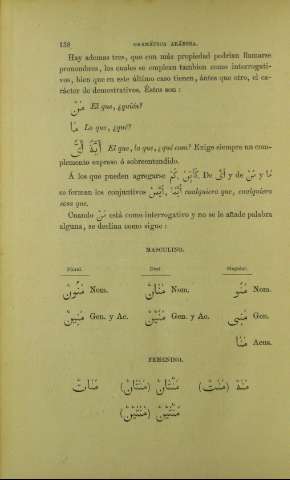 138 GRAMÁTICA ARÁBIGA.
Hay ademas tres, que con más propiedad podrian llamarse
pronombres, los cuales se emplean tambien como interrogati-
vos, bien que en este último caso tienen, ántes que otro, el ca-
rácter de demostrativos. Éstos son:
مَنْ El que, ¿quién?
مَا Lo que, ¿qué?
أَىُّ أَيَّةٌ El que, la que, ¿qué cosa? Exige siempre un com-
plemento expreso ó sobreentendido.
Á los que pueden agregarse كَمْ, كَأَيِّنْ. De أَىُّ y de مَنْ y مَا
se forman los conjuntivos أَيُّمَنْ, أَيُّمَا cualquiera que, cualquiera
cosa que.
Cuando مَنْ está como interrogativo y no se le añade palabra
alguna, se declina como sigue:
MASCULINO.
Plural. Dual. Singular.
مَنُونْ Nom. مَنَانْ Nom. مَنُو Nom.
مَنِينْ Gen. y Ac. مَنَيْنْ Gen. y Ac. مَنِى Gen.
مَنَا Acus.
FEMENINO.
مَنَاتْ مَنْتَانْ (مَنَتَانْ) مَنَهْ (مَنَتْ)
مَنْتَيْنْ (مَنَتَيْنْ)